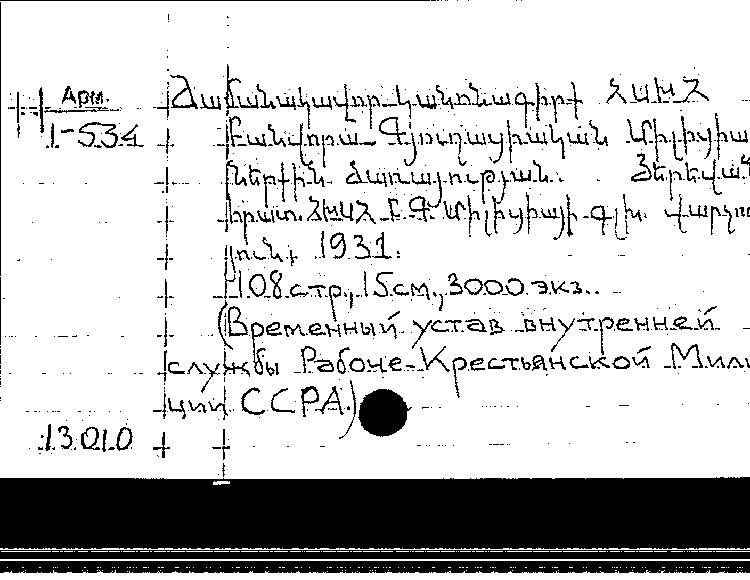 Арм.
1-534
Ժամանակավոր կանոնագիրք ՀՍԽՀ
Բանվորա-Գյուղացիական Միլիցիա
ներքին ծառայության. Յերեվան
հրատ. ՀԽՍՀ Բ.Գ. Միլիցիայի գլխ. վարչու
յունը 1931.
108 стр., 15 см., 3000 экз..
(Временный устав внутренней
службы Рабоче-Крестьянской Мили
ции ССРА.)
13.010